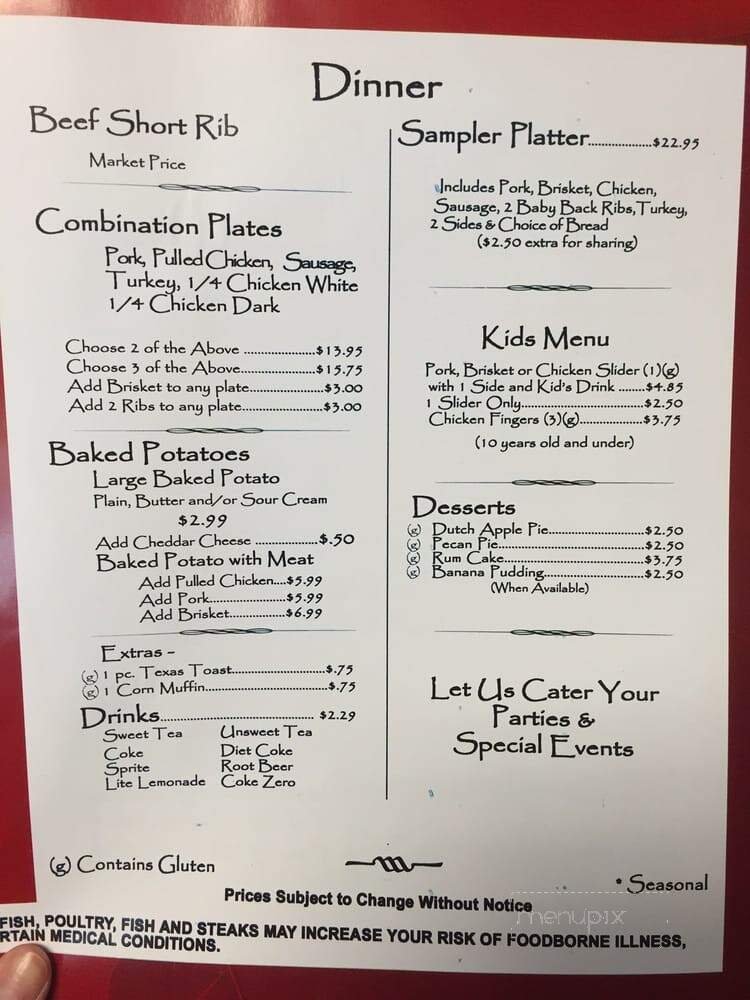 Dinner
Beef Short Rib
Market Price
Combination Plates
Pork, Pulled Chicken, Sausage,
Turkey, 1/4 Chicken White
1/4 Chicken Dark
Choose 2 of the Above .....................$13.95
Choose 3 of the Above......................$15.75
Add Brisket to any plate......................$3.00
Add 2 Ribs to any plate........................$3.00
Baked Potatoes
Large Baked Potato
Plain, Butter and/or Sour Cream
$2.99
Add Cheddar Cheese ...................$.50
Baked Potato with Meat
Add Pulled Chicken....$5.99
Add Pork.....................$5.99
Add Brisket................$6.99
Extras -
(g) 1 pc. Texas Toast.......................$.75
(g) 1 Corn Muffin..............................$.75
Drinks........................................ $2.29
Sweet Tea Unsweet Tea
Coke Diet Coke
Sprite Root Beer
Lite Lemonade Coke Zero
Sampler Platter...................$22.95
Includes Pork, Brisket, Chicken,
Sausage, 2 Baby Back Ribs, Turkey,
2 Sides & Choice of Bread
($2.50 extra for sharing)
Kids Menu
Pork, Brisket or Chicken Slider (1)(g)
with 1 Side and Kid's Drink .......$4.85
1 Slider Only................................$2.50
Chicken Fingers (3)(g)...................$3.75
(10 years old and under)
Desserts
(g) Dutch Apple Pie.........................$2.50
(g) Pecan Pie......................................$2.50
(g) Rum Cake.....................................$3.75
(g) Banana Pudding...........................$2.50
(When Available)
Let Us Cater Your
Parties &
Special Events
(g) Contains Gluten
* Seasonal
Prices Subject to Change Without Notice
menupix
FISH, POULTRY, FISH AND STEAKS MAY INCREASE YOUR RISK OF FOODBORNE ILLNESS,
RTAIN MEDICAL CONDITIONS.